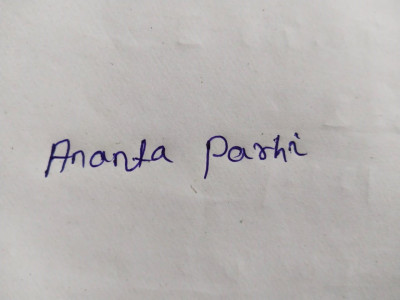 Ananta Parhi